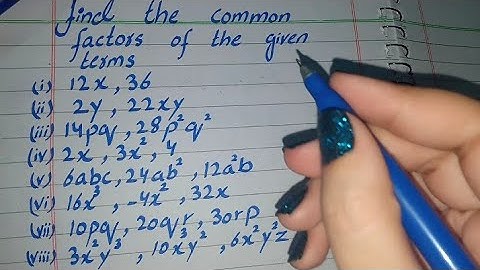 find the common
factors of the given
terms
(i) 12x, 36
(ii) 2y, 22xy
(iii) 14pq, 28p²q²
(iv) 2x, 3x², 4
(v) 6abc, 24ab², 12a²b
(vi) 16x³, -4x², 32x
(vii) 10pq, 20qr, 30rp
(viii) 3x²y³, 10x³y², 6x²y²z